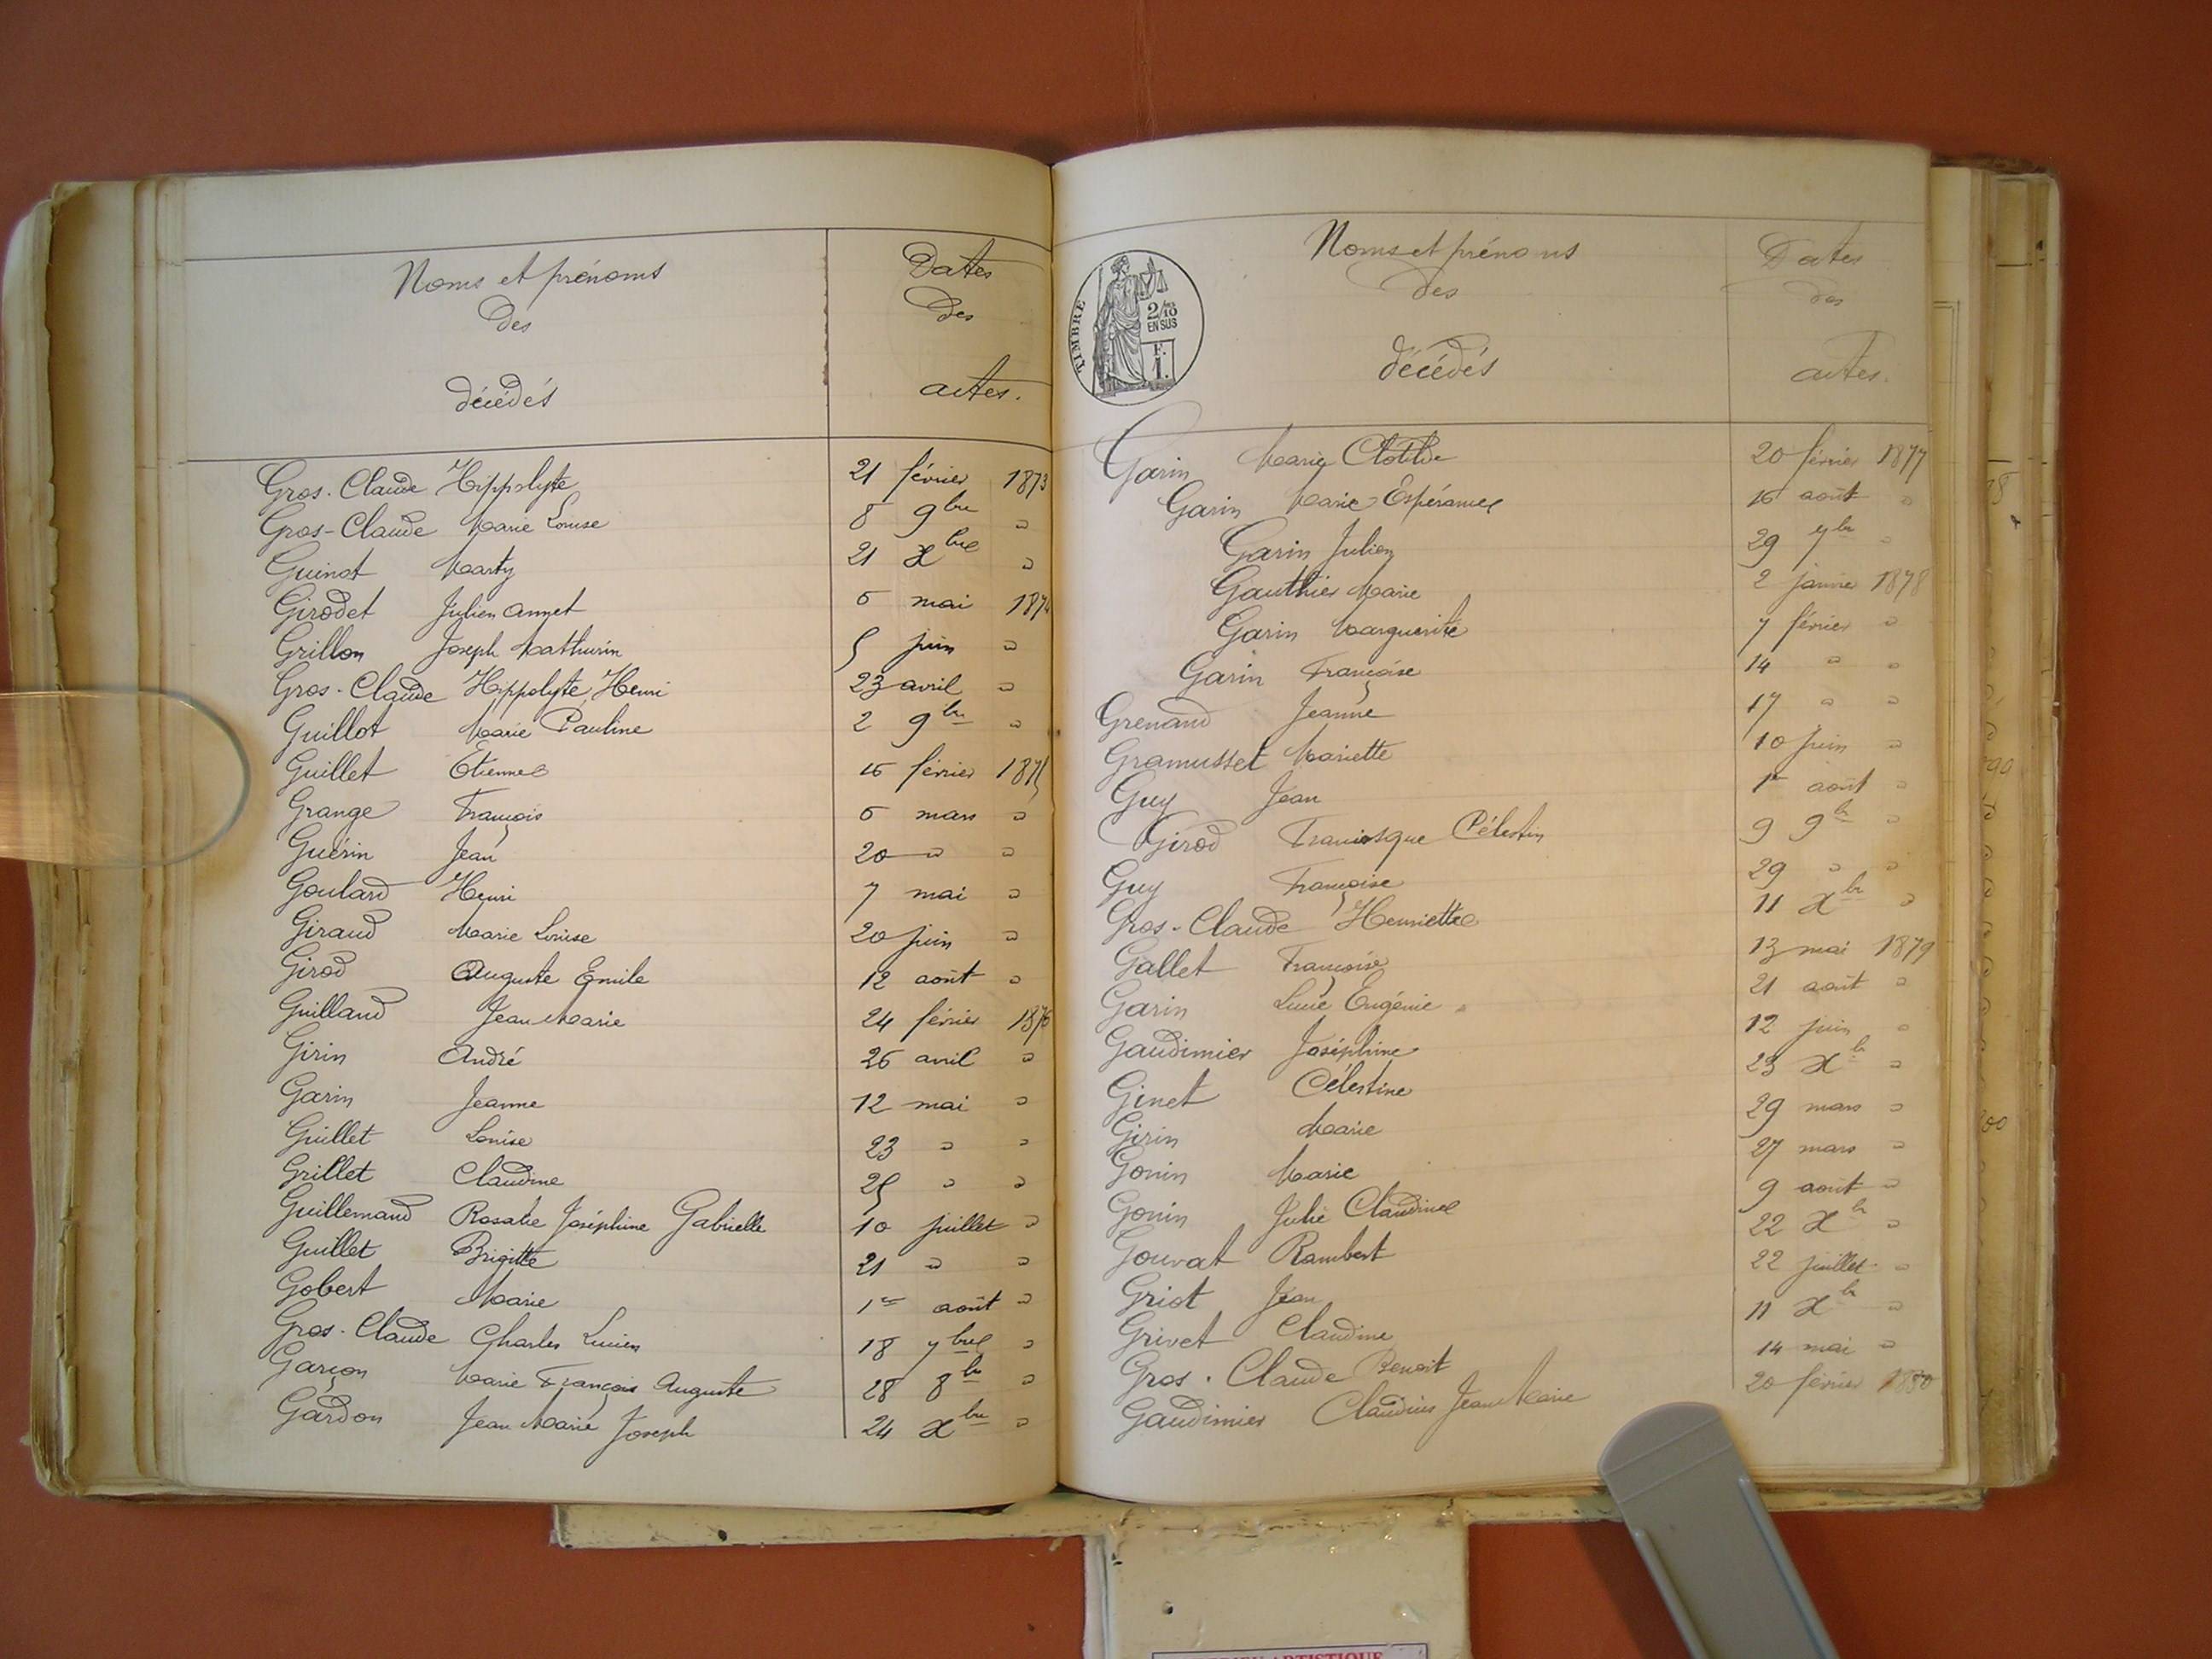 Noms et prénoms
des
décédés
Dates
des
actes.
Gros-Claude Hippolyte 21 février 1873
Gros-Claude Marie Louise 8 9bre "
Guinot Marty 21 Xbre "
Girodet Julien Annet 6 mai 1874
Grillon Joseph Mathurin 5 juin "
Gros-Claude Hippolyte Henri 23 avril "
Guillot Marie Pauline 2 9bre "
Guillet Etienne 16 février 1875
Grange François 6 mars "
Guérin Jean 20 " "
Goulard Henri 7 mai "
Giraud Marie Louise 20 juin "
Girod Auguste Emile 12 août "
Guilland Jean Marie 24 février 1876
Girin André 26 avril "
Garin Jeanne 12 mai "
Guillet Louise 23 " "
Grillet Claudine 25 " "
Guillemand Rosalie Joséphine Gabrielle 10 juillet "
Guillet Brigitte 21 " "
Gobert Marie 1er août "
Gros-Claude Charles Lucien 18 7bre "
Garçon Marie François Auguste 28 8bre "
Gardon Jean Marie Joseph 24 Xbre "
TIMBRE
2/10
EN SUS
F.
1.
Noms et prénoms
des
décédés
Dates
des
actes.
Garin Marie Clotilde 20 février 1877
Garin Marie Espérance 16 août "
Garin Julien 29 7bre "
Gauthier Marie 2 janvier 1878
Garin Marguerite 7 février "
Garin Françoise 14 " "
Grenand Jeanne 17 " "
Gramusset Mariette 10 juin "
Guy Jean 1er août "
Girod Francisque Célestin 9 9bre "
Guy Françoise 29 " "
Gros-Claude Henriette 11 Xbre "
Gallet Françoise 13 mai 1879
Garin Lucie Eugénie 21 août "
Gaudimier Joséphine 12 juin "
Ginet Célestine 23 Xbre "
Girin Marie 29 mars "
Gonin Marie 27 mars "
Gonin Julie Claudine 9 août "
Gouvat Rambert 22 Xbre "
Griot Jean 22 juillet "
Grivet Claudine 11 Xbre "
Gros-Claude Benoit 14 mai "
Gaudimier Claudius Jean Marie 20 février 1880